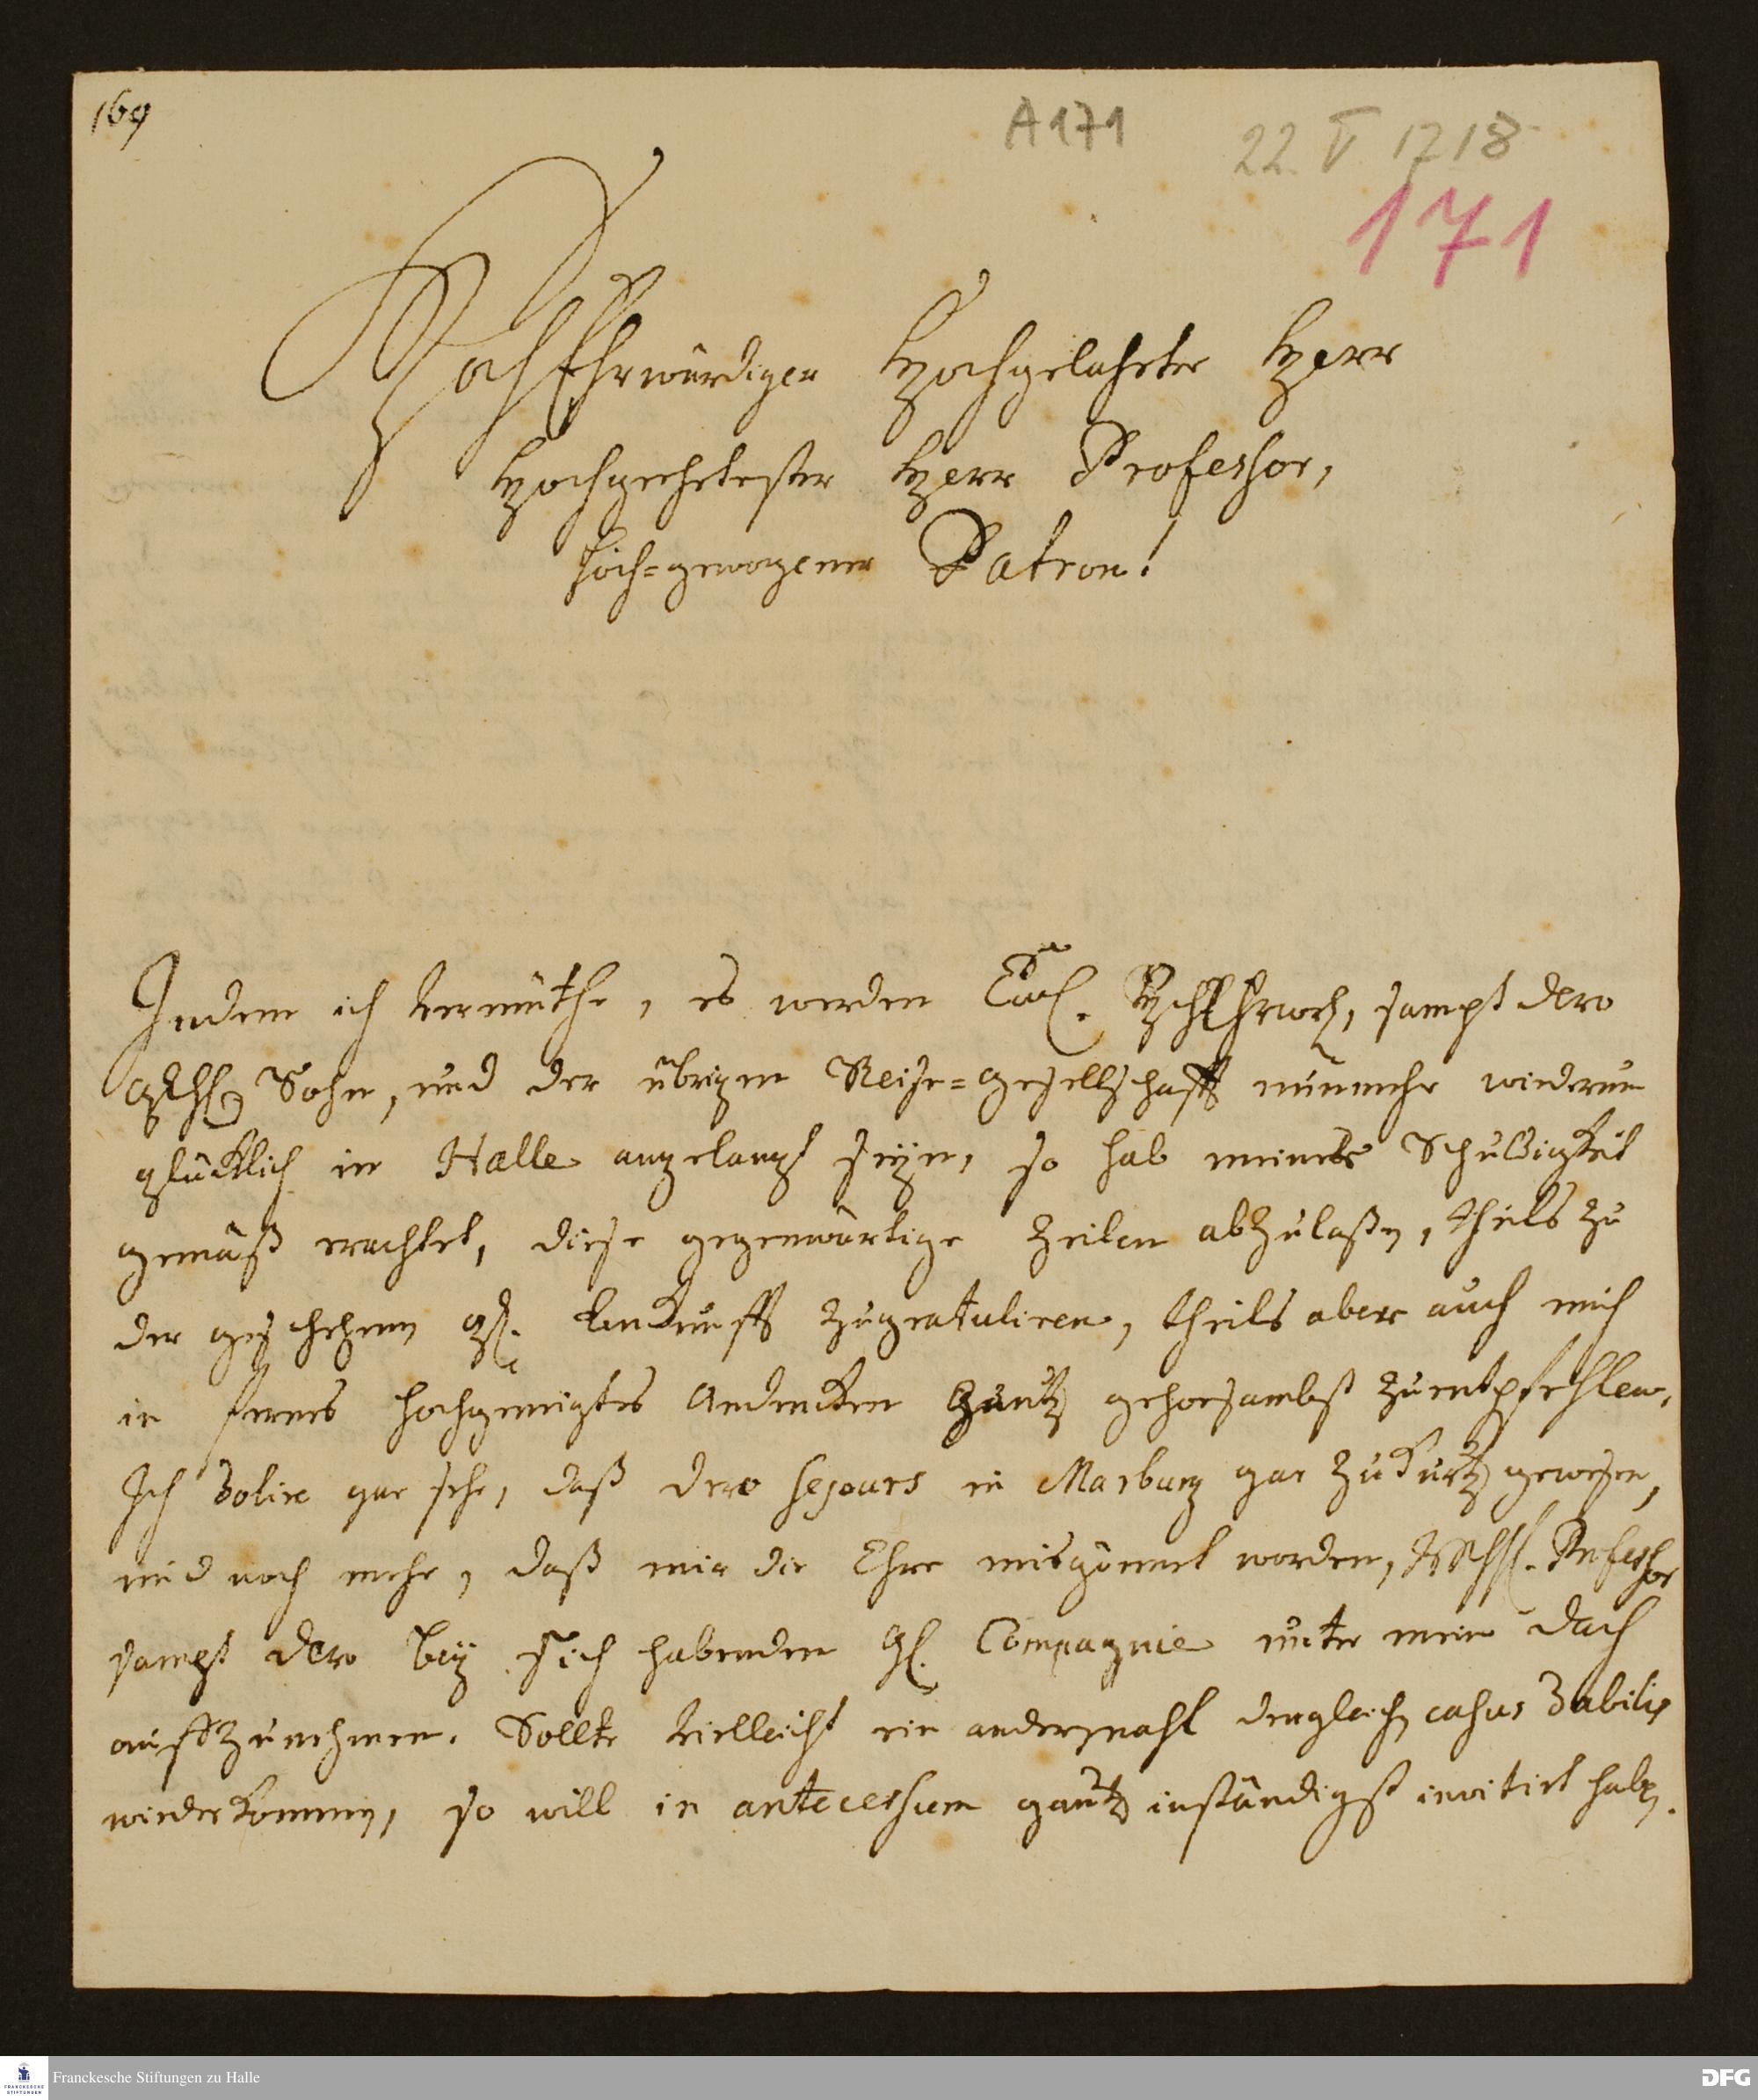 169
A 171
22. V. 1718
171
HochEhrwürdiger Hochgelahrter Herr
Hochgeehrtester Herr Professor,
Hoch=gewogener Patron!
Indem ich vermuthe, es werden Ew. HochEhrwd, sampt dero
Sohn, und der übrigen Reise=gesellschafft nunmehr wiederum
glücklich in Halle angelangt seyn, so hab meiner Schuldigkeit
gemäß erachtet, diese gegenwärtige Zeilen abzulaßen, theils zu
der geschehenen gl. Ankunfft zugratuliren, theils aber auch mich
in fernes hochgeneigtes Andencken gantz gehorsambst zuentpfehlen,
Ich dolire gar sehr, daß dero sejours in Marburg gar zu kurtz gewesen,
und noch mehr, daß mir die Ehre misgönnet worden, Professor
sampt dero bey sich habenden Compagnie unter mein Dach
auffzunehmen. Sollte vielleicht ein andermahl dergleichen casus dabilis
wiederkommen, so will in antecessum gantz inständigst invitirt haben.
Franckesche Stiftungen zu Halle
FRANCKESCHE
STIFTUNGEN
DFG